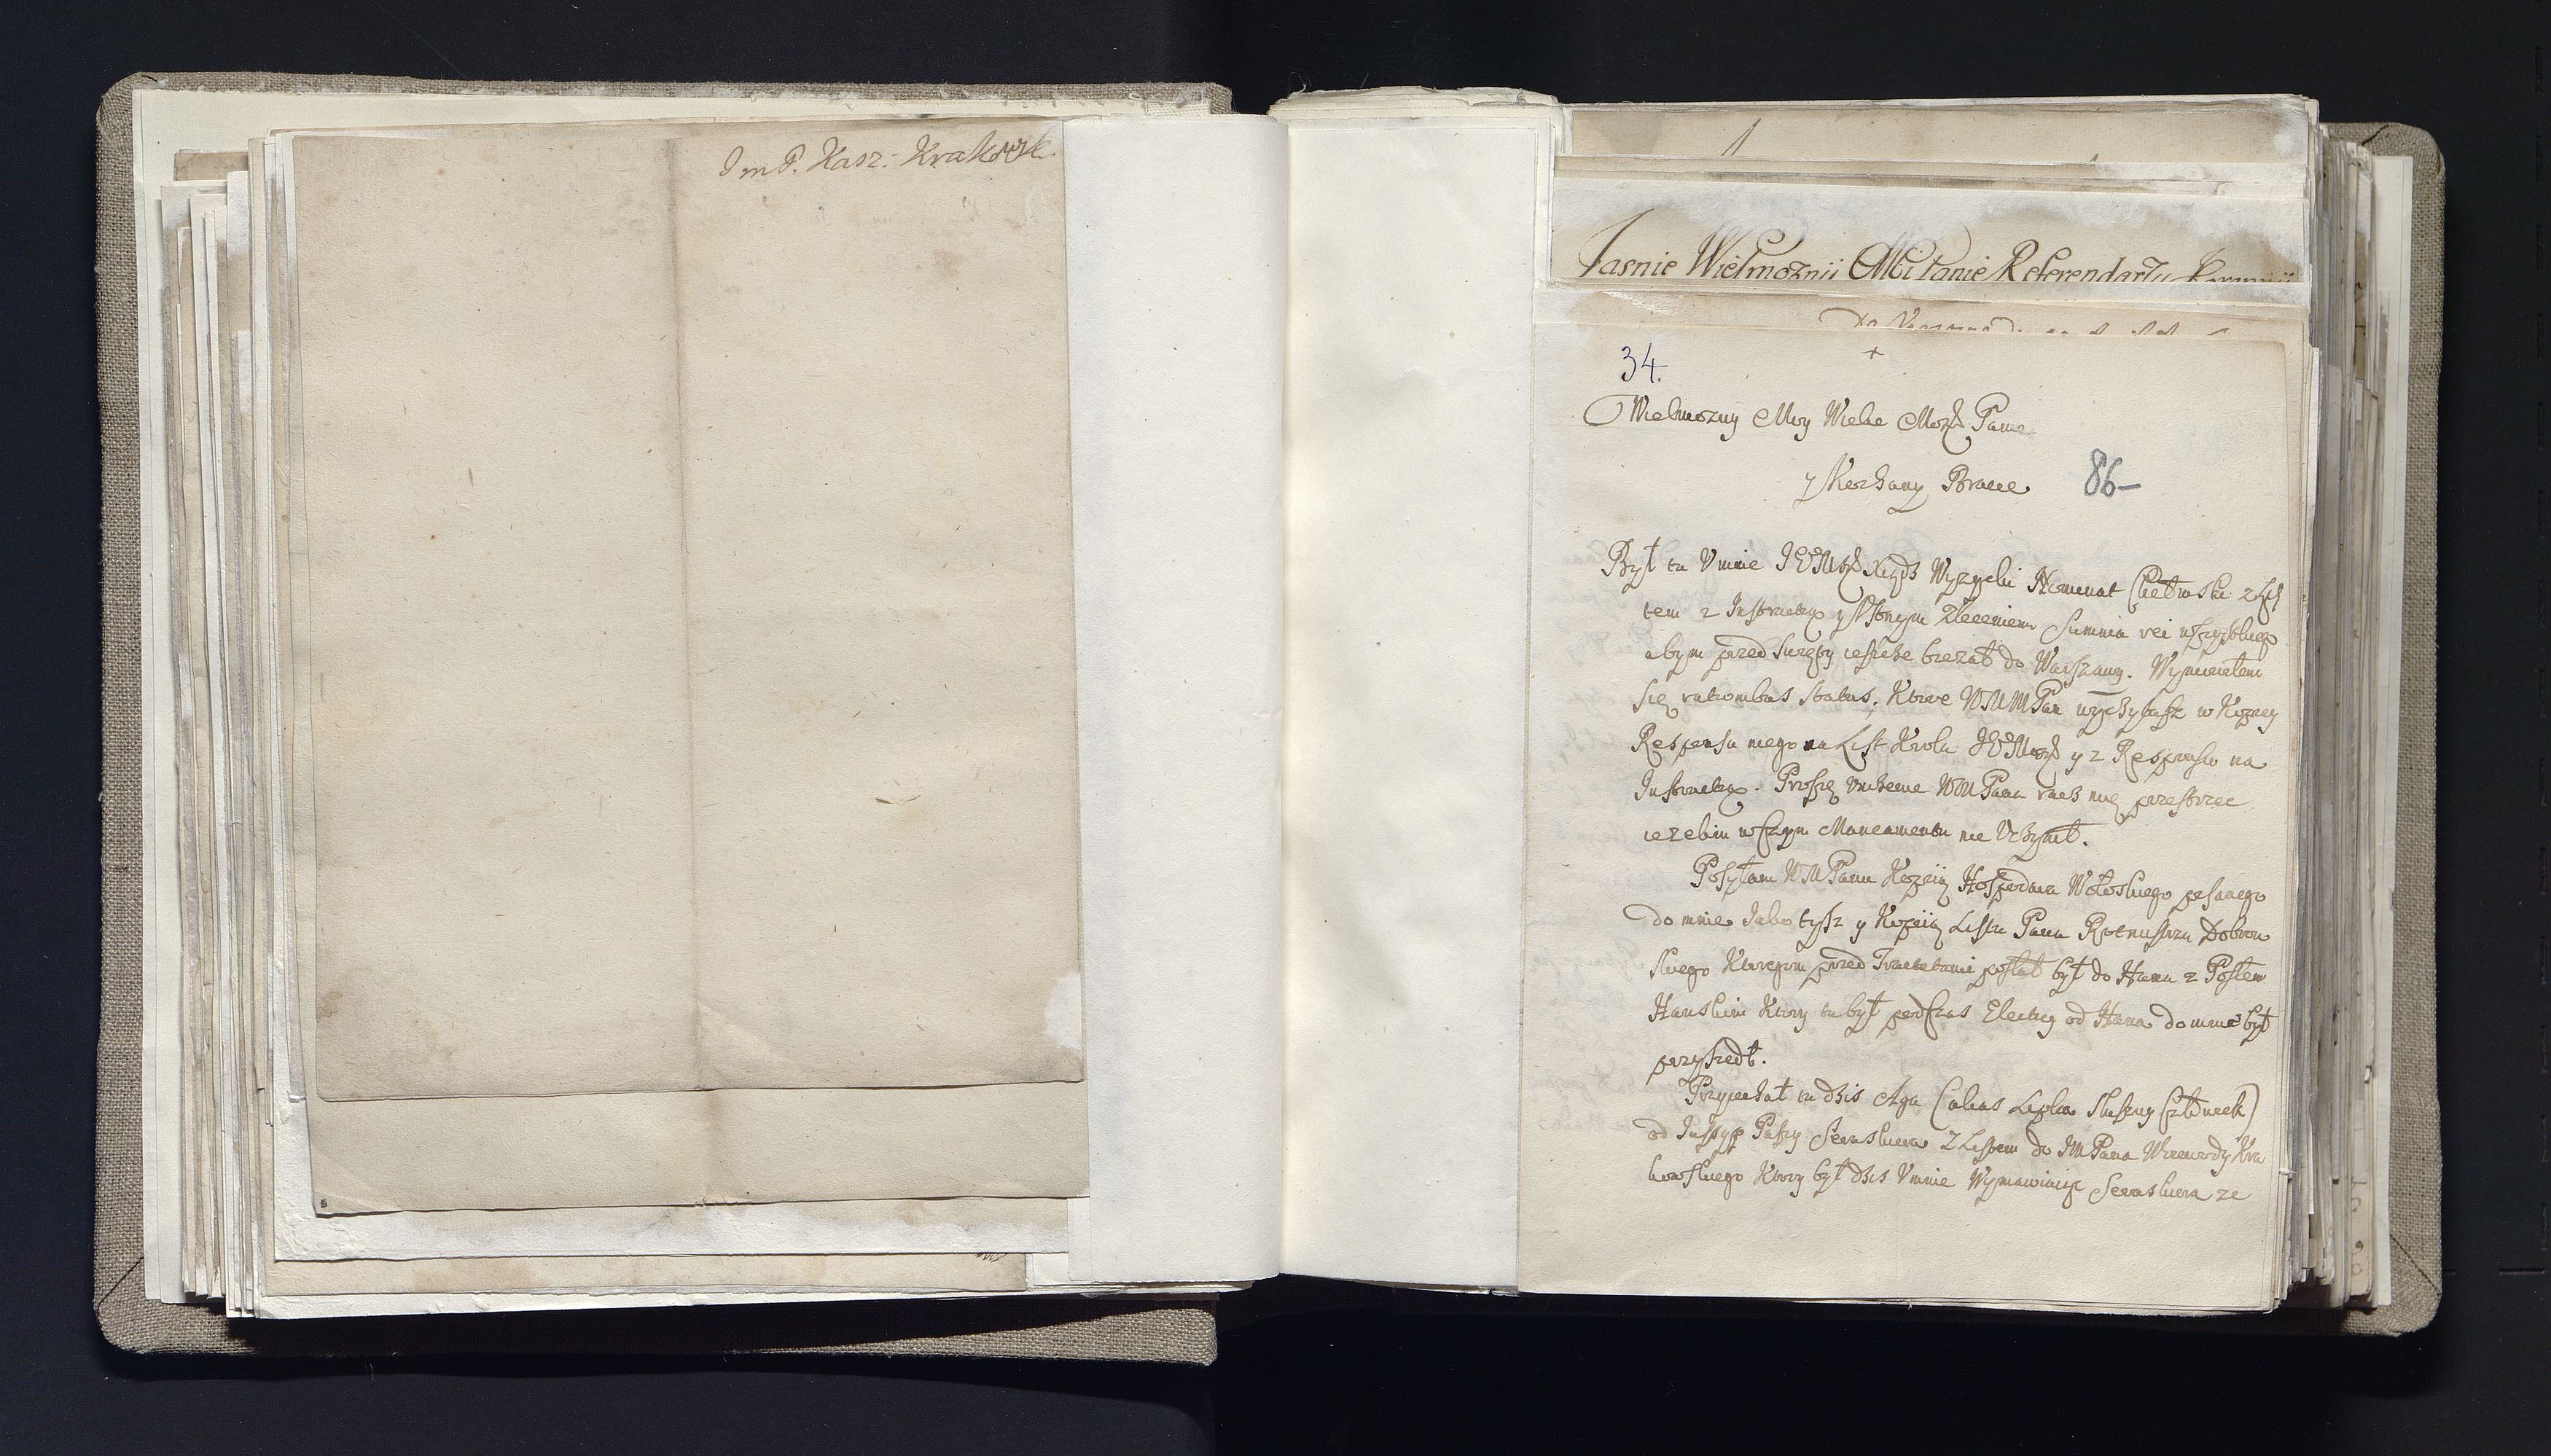 JmP. Kasz: Krakowsk.
1
Jasnie Wielmoznii Mci Panie Referendarzu
34.
+
Wielmozny Moy Wielce Mosci Panie
y Kochany Bracie
86
Był tu Vmnie JEoMosc Xiądz Wyzycki Nominat Chełmski z Lis
tem z Instructią y Vstnym Zleceniem Summa rei wszystkiego
abym przed Sierpn ieszcze bieżał do Warszawy. Wymowiłem
się rationibus status, Ktore WMMPan wyczytasz w Kopiey
Responsu mego na List Krola JEoMosci y z Responsu na
Instructią. Proszę Vnizenie WMPana racz mię przestrzec
iezelim wczym Mancamentu nie Vczynił.
Posyłam WMPanu Kopiią Hospodara Wołoskiego pisanego
do mnie Jako tysz y Kopiią Listu Pana Rotmistrza Dobrow
skiego Ktoregom przed Tractatami posłał był do Hana z Posłem
Hanskim Ktory tu był podczas Electiy od Hana do mnie był
przyszedł.
Przyiechał tu dzis Aga (alias Lipka Słuszny Człowiek)
od Jussup Paszy Seraskiera z Listem do JMPana Woiewody Kra
kowskiego Ktory był dzis Vmnie Wymawiaiąc Seraskiera ze